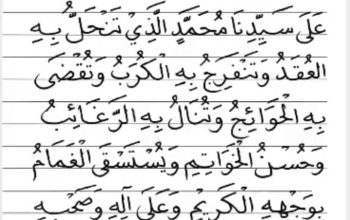 عَلَى سَيِّدِنَا مُحَمَّدٍ الَّذِي تَنْحَلُّ بِهِ
العُقَدُ وَتَنْفَرِجُ بِهِ الْكُرَبُ وَتُقْضَى
بِهِ الْحَوَائِجُ وَتُنَالُ بِهِ الرَّغَائِبُ
وَحُسْنُ الْخَوَاتِمِ وَيُسْتَسْقَى الْغَمَامُ
بِوَجْهِهِ الْكَرِيمِ وَعَلَى آلِهِ وَصَحْبِهِ